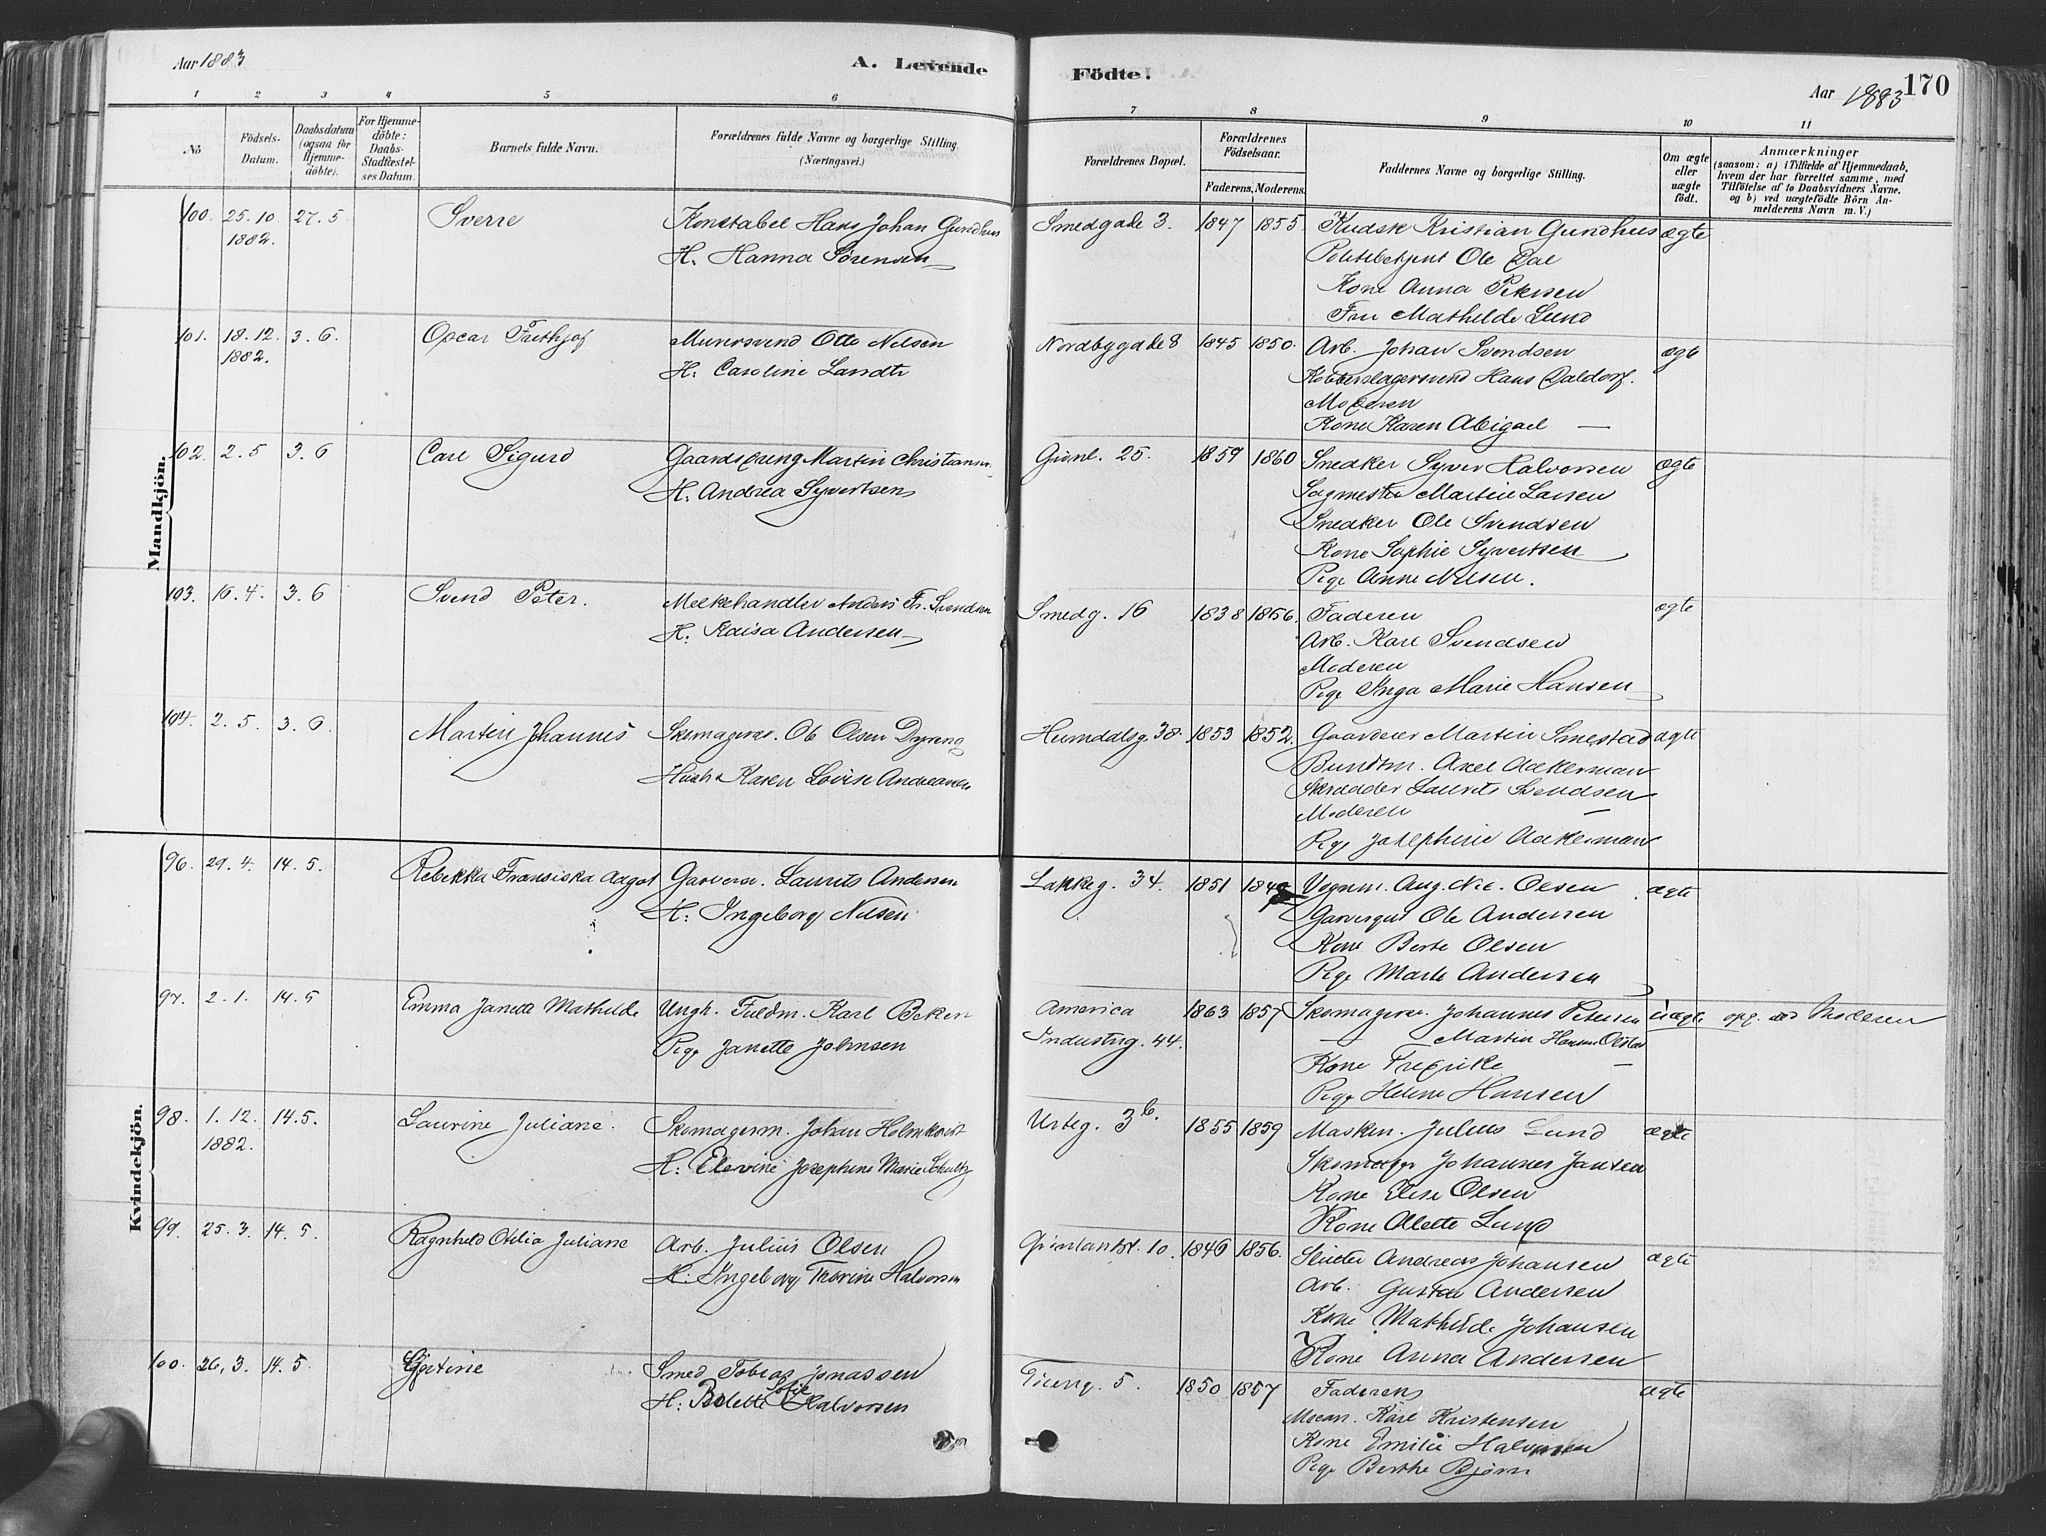 Aar 1883
A. Levende
Födte.
Aar 1883
170
1 2 3 4 5 6 7 8 9 10 11
No
Födsels-
Datum.
Daabsdatum
(ogsaa for
Hjemme-
döbte).
For Hjemme-
döbte:
Daabs-
Stadfæstel-
ses Datum.
Barnets fulde Navn.
Forældrenes fulde Navne og borgerlige Stilling.
(Næringsvei.)
Forældrenes Bopæl.
Forældrenes
Födselsaar.
Faderens. Moderens.
Faddernes Navne og borgerlige Stilling.
Om ægte
eller
uægte
födt.
Anmærkninger
(saasom: a) i Tilfælde af Hjemmedaab,
hvem der har forrettet samme, med
Tilföielse af to Daabsvidners Navne.
og b) ved uægtefödte Börn An-
melderens Navn m. V.)
Mandkjön.
100. 25. 10. 27. 5 Sverre Konstabel Hans Johan Gundhus Smedgade 3. 1847 1855 Kudsk Kristian Gundhus ægte
1882. H. Hanna Sörensen Politibetjent Ole Dal
Kone Anna Petersen
Fru Mathilde Lund
101. 18. 12. 3. 6. Oscar Frithjof Murersvend Otto Nilsen Nordbygade 8 1845 1850. Arb. Johan Svendsen ægte
1882. H. Caroline Kobberslagersvend Hans Daldorf.
Moderen
Kone Karen Abigael —
102. 2. 5 3. 6 Carl Sigurd Gaardsdreng Martin Christiansen Grönl. 25. 1859 1860 Snedker Syver Halvorsen ægte
H. Andrea Syvertsen Sagmester Martin Larsen
Snedker Ole Svendsen
Kone Sophie Syvertsen
Pige Anne Nilsen.
103. 16. 4. 3. 6 Svend Peter. Melkehandler Anders Fr. Svendsen Smedg. 16 1838 1856. Faderen ægte
H. Kaisa Andersen Arb. Karl Svendsen
Moderen
Pige Inga Marie Hansen
104. 2. 5. 3. 6. Martin Johannes Skomagersv. Ole Olsen Dyreng Heimdalsg. 38. 1853 1852. Gaardeier Martin Smestad ægte
Hustr. Karen Lovise Andreasen Bundtm. Axel Aakerman
Skrædder Laurits Svendsen
Moderen —
Pige Josephine Aakerman
Kvindekjön.
96. 29. 4. 14. 5. Rebekka Fransiska Aagot Garversv. Laurits Andersen Lakkeg. 34. 1851 Vognm. Aug. Nic. Olsen ægte
H. Ingeborg Nilsen Garversv. Ole Andersen
Kone Berte Olsen
Pige Marte Andersen
97. 2. 1. 14. 5 Emma Janette Mathilde Ungk. Fuldm. Karl Beken America 1863 1857 Skomagersv. Johannes Petersen uægte opg. ved Moderen
Pige Janette Johnsen Industrig. 44. — Martin Olstad
Kone Fredrike —
Pige Helene Hansen
98. 1. 12. 14. 5. Laurine Juliane. Skomagerm. Johan Holmkvist Urteg. 3b. 1855 1859 Maskin. Julius Lund ægte
1882. H. Elevine Josephine Marie Schultz Skomager Johannes Jansen
Kone Elise Olsen
Kone Olette Lund
99. 25. 3. 14. 5. Ragnhild Otilia Juliane Arb. Julius Olsen Grönlandst. 10. 1846 1856. Andreas Johansen ægte
H. Ingeborg Thorine Halvorsen Arb. Gustav Andersen
Kone Mathilde Johansen
Kone Anna Andersen
100. 26. 3. 14. 5. Smed Tobias Jonassen 5. 1850 1857 Faderen ægte
H. Bolette Sofie Halvorsen Karl Kristensen
Kone Emilie Halvorsen
Pige Berthe Björn